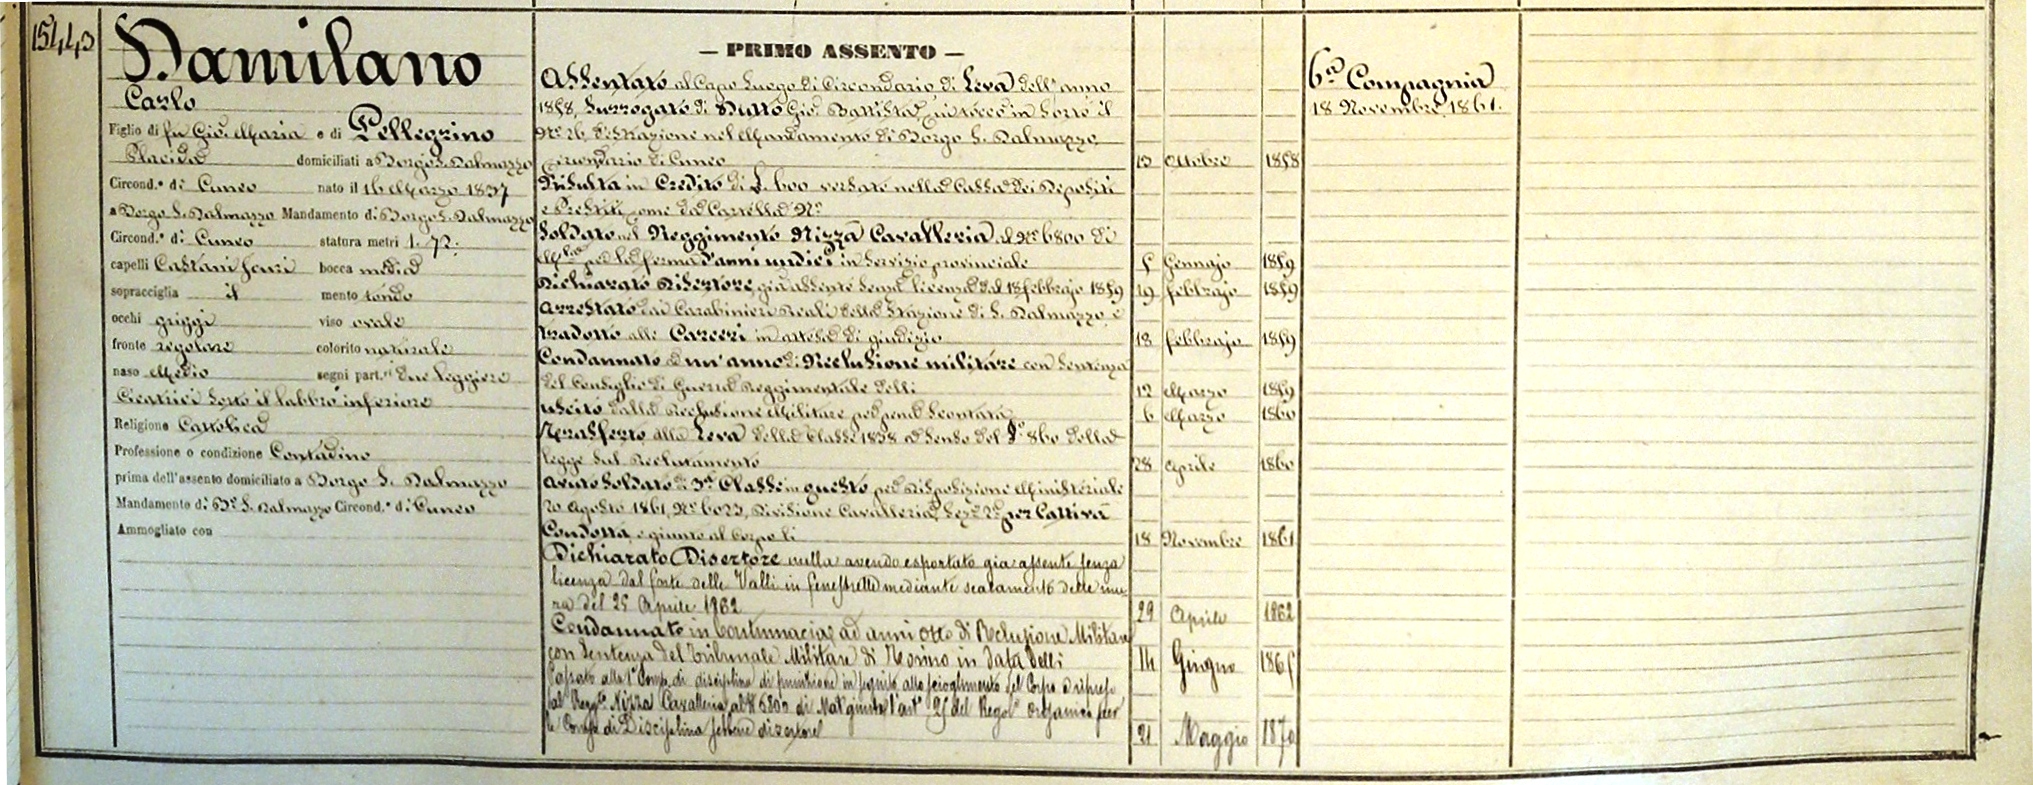 15443
Damilano
Carlo
Figlio di fu Gio. Maria e di Pellegrino
Placida domiciliati a Borgo S. Dalmazzo
Circond.o di Cuneo nato il 16 Marzo 1837
a Borgo S. Dalmazzo Mandamento di Borgo S. Dalmazzo
Circond.o di Cuneo statura metri 1. 72.
capelli Castani scuri bocca media
sopracciglia id mento tondo
occhi griggi viso ovale
fronte regolare colorito naturale
naso Medio segni part.ri due leggiere
Cicatrici sotto il labbro inferiore
Religione Cattolica
Professione o condizione Contadino
prima dell'assento domiciliato a Borgo S. Dalmazzo
Mandamento di B.o S. Dalmazzo Circond.o di Cuneo
Ammogliato con
— PRIMO ASSENTO —
Assentato al Capo Luogo di Circondario di Leva dell'anno
1858, surrogato di Dutto Gio. Battista, cui toccò in sorte il
N.o 26 d'estrazione nel Mandamento di Borgo S. Dalmazzo,
Circondario di Cuneo 13 Ottobre 1858
Risulta in Credito di L. 600 versate nella Cassa dei Depositi
e Prestiti come da Cartella N.o
Soldato nel Reggimento Nizza Cavalleria al N.o 6800 di
M.la per la ferma d'anni undici in servizio provinciale 5 Gennajo 1859
Dichiarato Disertore, già assente senza licenza dal 18 febbrajo 1859 19 febbrajo 1859
Arrestato dai Carabinieri Reali della Stazione di S. Dalmazzo e
tradotto alle Carceri in attesa di giudizio 18 febbrajo 1859
Condannato a un'anno di Reclusione militare con sentenza
del Consiglio di Guerra Reggimentale delli 12 Marzo 1859
Uscito dalla Reclusione Militare per pena scontata 6 Marzo 1860
Trasferto alla Leva della Classe 1838 a senso del §.o 860 della
legge sul Reclutamento 28 Aprile 1860
Avuto Soldato di 3.a Classe in questo per Disposizione Ministeriale
20 Agosto 1861, N.o 6023, Divisione Cavalleria, Sez.e 2.a per Cattiva
Condotta, e giunto al Corpo li 18 Novembre 1861
Dichiarato Disertore nulla avendo esportato già assente senza
licenza dal forte delle Valli in Fenestrelle mediante scalamento delle mu-
ra del 25 Aprile 1862 29 Aprile 1862
Condannato in Contumacia ad anni otto di Reclusione Militare
con Sentenza del Tribunale Militare di Torino in data delli 14 Giugno 1865
Passato alla 1.a Comp. di disciplina di punizione in seguito allo scioglimento del Corpo e ripreso
dal Regg.to Nizza Cavalleria al N. 6800 di Mat. giusta l'art. 25 del Regol.o organico per
le Comp.e di Disciplina sebbene disertore 21 Maggio 1870
6.a Compagnia
18 Novembre 1861.